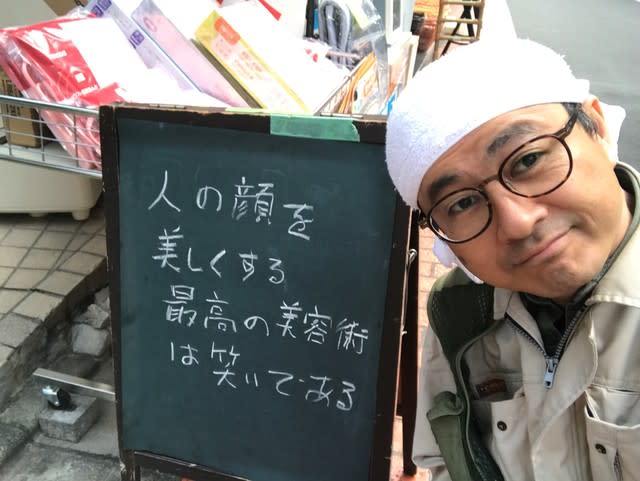 人の顔を
美しくする
最高の美容術
は笑いである